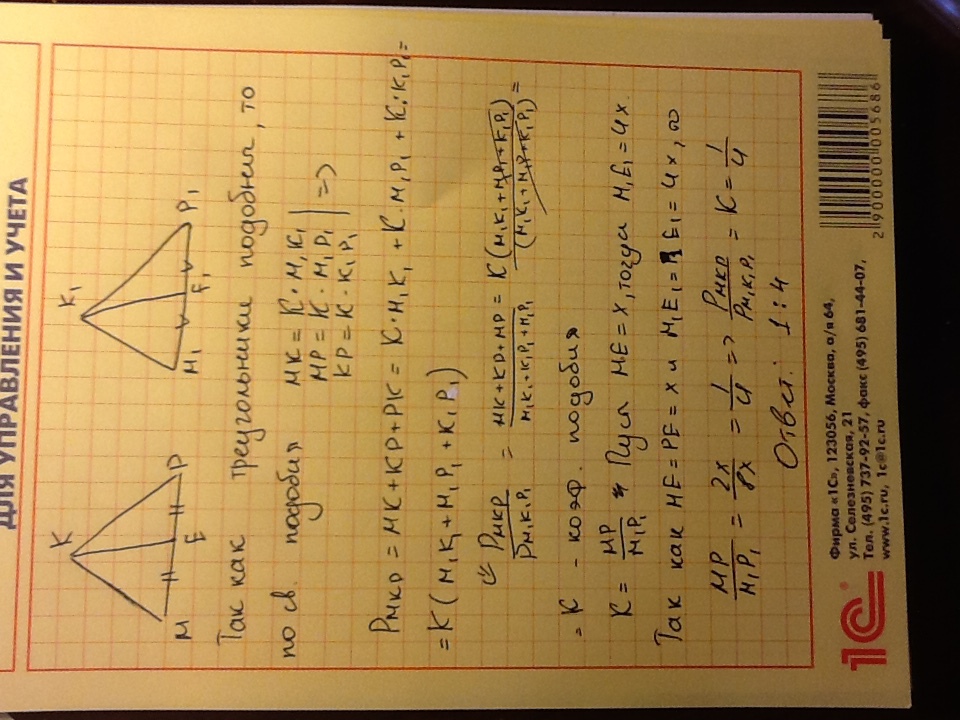 ДЛЯ УПРАВЛЕНИЯ И УЧЕТА
K K₁
M E P M₁ E₁ P₁
Так как треугольники подобны, то
по св. подобия MK = K · M₁K₁
MP = K · M₁P₁ =>
KP = K · K₁P₁
P_MKP = MK + KP + PK = K · M₁K₁ + K · M₁P₁ + K · K₁P₁ =
= K (M₁K₁ + M₁P₁ + K₁P₁)
P_MKP / P_M₁K₁P₁ = MK + KP + MP / M₁K₁ + K₁P₁ + M₁P₁ = K (M₁K₁ + M₁P₁ + K₁P₁) / (M₁K₁ + M₁P₁ + K₁P₁) =
= K - коэф. подобия
K = MP / M₁P₁ Пусть ME = x, тогда M₁E₁ = 4x.
Так как ME = PE = x и M₁E₁ = P₁E₁ = 4x, то
MP / M₁P₁ = 2x / 8x = 1 / 4 => P_MKP / P_M₁K₁P₁ = K = 1 / 4
Ответ: 1 : 4
1С®
Фирма «1С», 123056, Москва, а/я 64,
ул. Селезневская, 21
Тел. (495) 737-92-57, факс (495) 681-44-07,
www.1c.ru, 1c@1c.ru
2 900000 005686